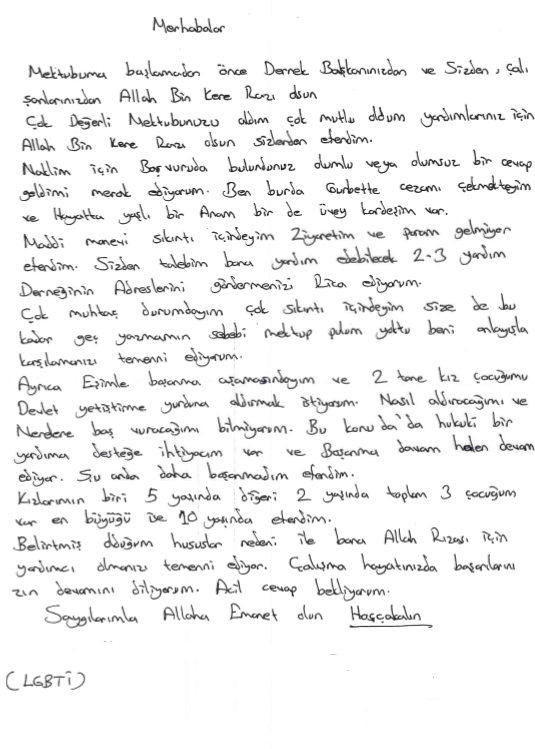 Merhabalar
Mektubuma başlamadan önce Dernek Başkanınızdan ve Sizden, çalı
şanlarınızdan Allah Bin Kere Razı olsun
Çok Değerli Mektubunuzu aldım çok mutlu oldum yardımlarınız için
Allah Bin Kere Razı olsun sizlerden efendim.
Naklim için Başvuruda bulundunuz olumlu veya olumsuz bir cevap
geldimi merak ediyorum. Ben burda Gurbette cezamı çekmekteyim
ve Hayatta yaşlı bir Anam bir de üvey kardeşim var.
Maddi manevi sıkıntı içindeyim Ziyaretim ve param gelmiyor
efendim. Sizden talebim bana yardım edebilecek 2-3 yardım
Derneğinin Adreslerini göndermenizi Rica ediyorum.
Çok muhtaç durumdayım çok sıkıntı içindeyim size de bu
kadar geç yazmamın sebebi mektup pulum yoktu beni anlayışla
karşılamanızı temenni ediyorum.
Ayrıca Eşimle boşanma aşamasındayım ve 2 tane kız çocuğumu
Devlet yetiştirme yurduna aldırmak istiyorum. Nasıl aldıracağımı ve
Nerdene baş vuracağımı bilmiyorum. Bu konu da'da hukuki bir
yardıma desteğe ihtiyacım var ve Boşanma davam halen devam
ediyor. Şu anda daha boşanmadım efendim.
Kızlarımın biri 5 yaşında diğeri 2 yaşında toplam 3 çocuğum
var en büyüğü ise 10 yaşında efendim.
Belirtmiş olduğum hususlar nedeni ile bana Allah Rızası için
yardımcı olmanızı temenni ediyor. Çalışma hayatınızda başarıların
zın devamını diliyorum. Acil cevap bekliyorum.
Saygılarımla Allaha Emanet olun Hoşçakalın
(LGBTİ)